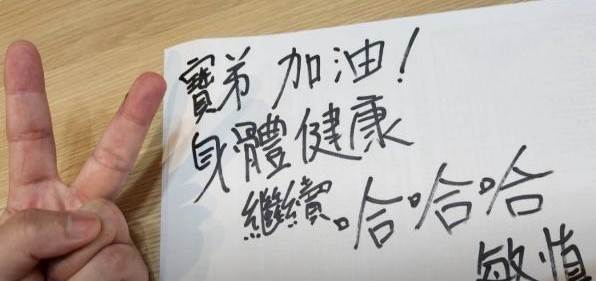 寶弟 加油!
身體健康
繼續.哈.哈.哈
敏慎